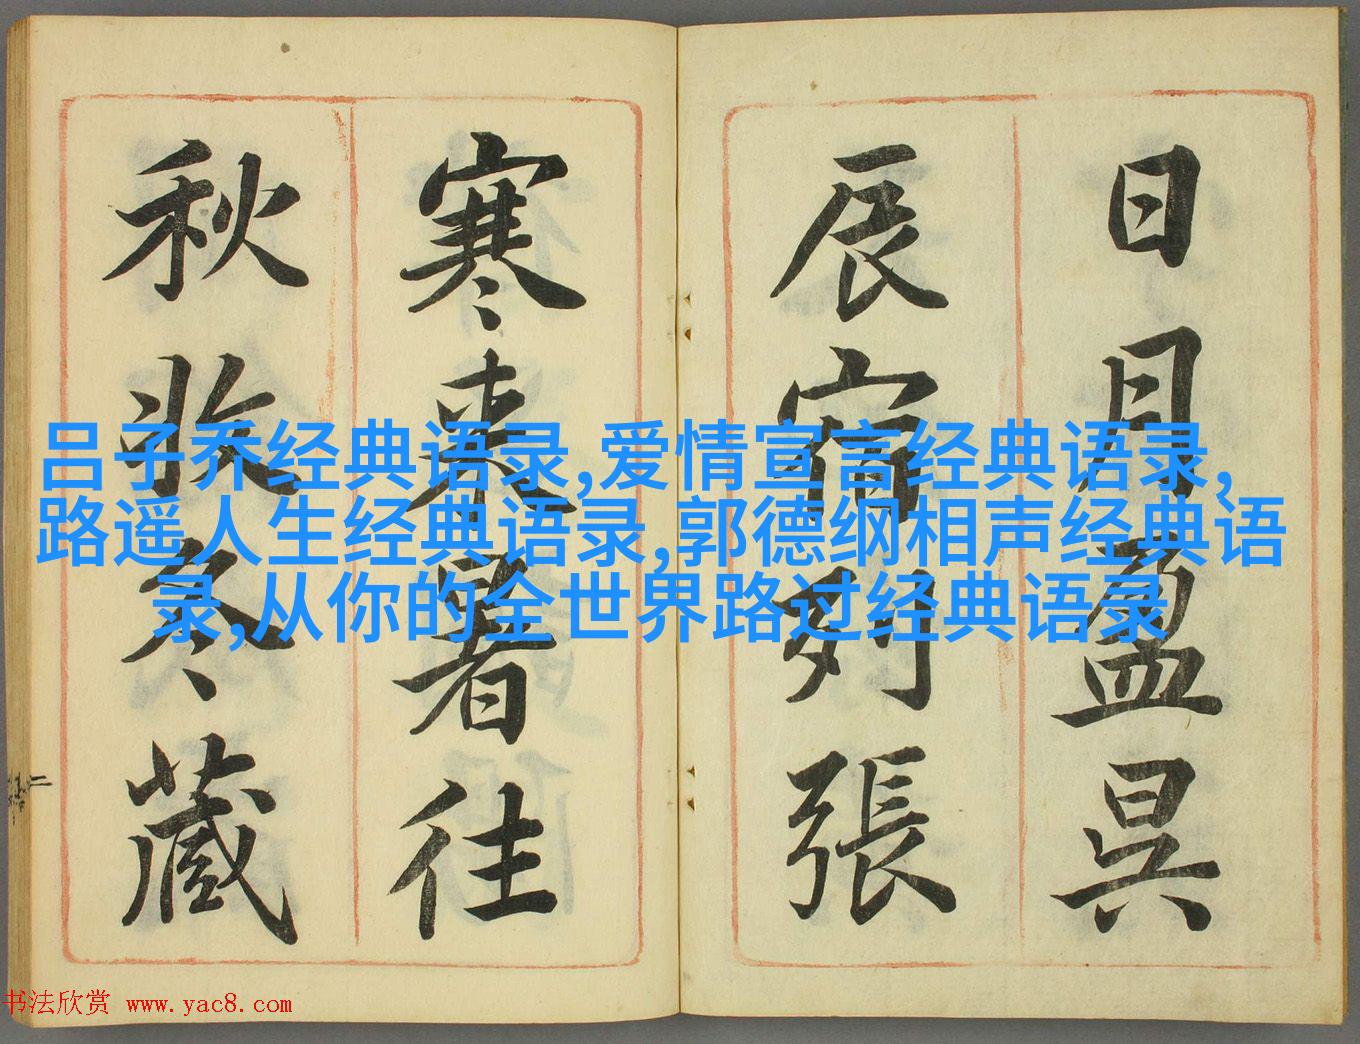 日月盈昃
辰宿列張
寒來暑往
秋收冬藏
吕子乔经典语录,爱情宣言经典语录,
路遥人生经典语录,郭德纲相声经典语
录,从你的全世界路过经典语录
书法欣赏 www.yac8.com